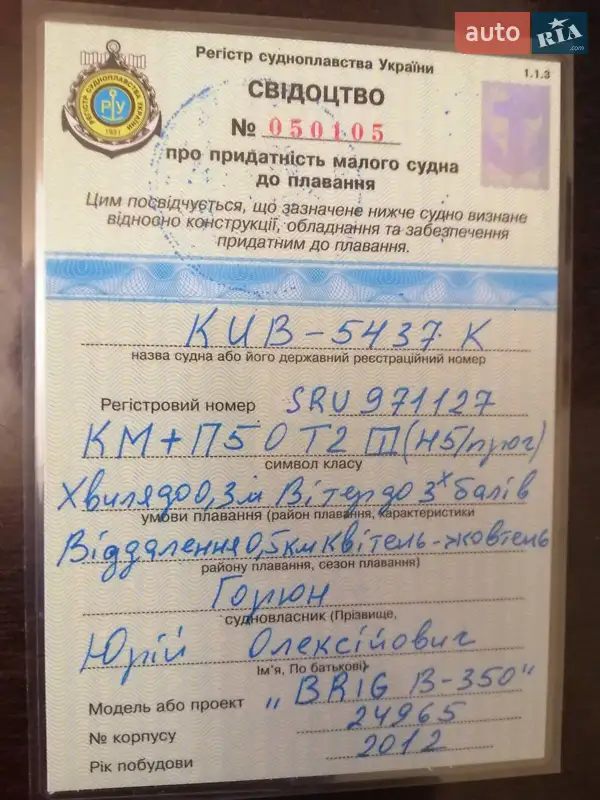 auto RIA .com
Регістр судноплавства України
1.1.3
РЕГІСТР СУДНОПЛАВСТВА УКРАЇНИ
РУ
СВІДОЦТВО
№ 050105
про придатність малого судна
до плавання
Цим посвідчується, що зазначене нижче судно визнане
відносно конструкції, обладнання та забезпечення
придатним до плавання.
КИВ-5437 К
назва судна або його державний реєстраційний номер
Регістровий номер SRU 971127
КМ+П50Т2 III (Н5/прог)
символ класу
Хвиля до 0,3 м Вітер до 3х балів
умови плавання (район плавання, характеристики
Віддалення 0,5 км Квітень-жовтень
району плавання, сезон плавання)
Горюн
судновласник (Прізвище,
Юрій Олексійович
Ім'я, По батькові)
Модель або проект "BRIG B-350"
№ корпусу 24965
Рік побудови 2012